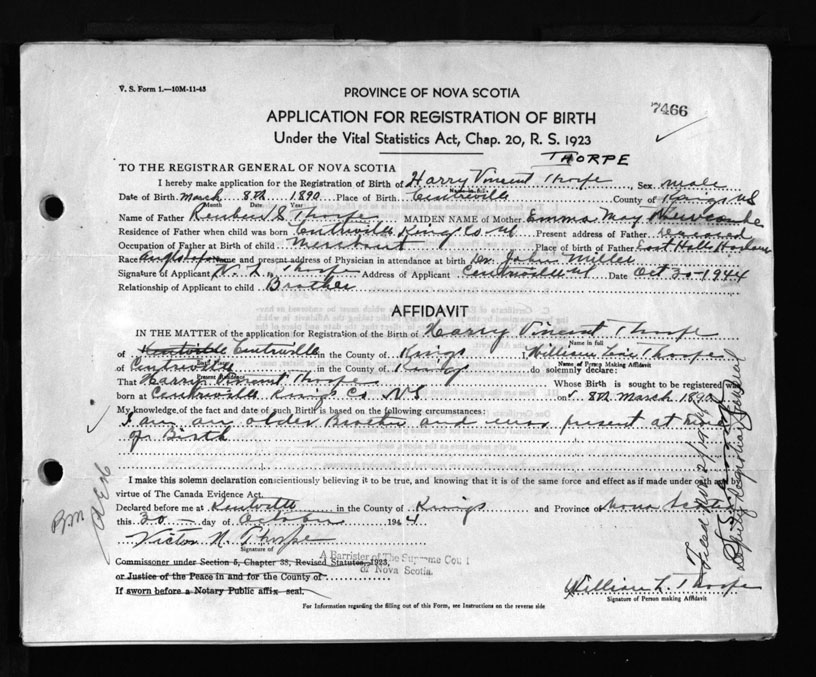 V. S. Form 1.—10M-11-43
PROVINCE OF NOVA SCOTIA
7466
APPLICATION FOR REGISTRATION OF BIRTH
Under the Vital Statistics Act, Chap. 20, R. S. 1923
THORPE
TO THE REGISTRAR GENERAL OF NOVA SCOTIA
I hereby make application for the Registration of Birth of Harry Vincent Thorpe Sex male
Date of Birth March 8th 1890 Place of Birth Centreville County of Kings NS
Month Date Year
Name of Father Reuben S Thorpe MAIDEN NAME of Mother Emma May Newcombe
Residence of Father when child was born Centreville Kings Co NS Present address of Father deceased
Occupation of Father at Birth of child Merchant Place of Birth of Father East Halls Harbour
Race Name and present address of Physician in attendance at birth Dr. John Miller
Signature of Applicant W. L. Thorpe Address of Applicant Centreville NS Date Oct 30 1944
Relationship of Applicant to child Brother
AFFIDAVIT
IN THE MATTER of the application for Registration of the Birth of Harry Vincent Thorpe
Name in full
of Kentville Centreville in the County of Kings William Thorpe
Name of Person Making Affidavit
of Centreville in the County of Kings do solemnly declare:
Present Residence
That Harry Vincent Thorpe Whose Birth is sought to be registered was
born at Centreville Kings Co NS on 8th March 1890
My knowledge of the fact and date of such Birth is based on the following circumstances:
I am an older Brother and was present at time
of Birth
I make this solemn declaration conscientiously believing it to be true, and knowing that it is of the same force and effect as if made under oath by
virtue of The Canada Evidence Act.
Declared before me at Kentville in the County of Kings and Province of Nova Scotia
this 30 day of October 1944
Victor N. Thorpe
Signature of
A Barrister of The Supreme Court
of Nova Scotia.
Commissioner under Section 5, Chapter 38, Revised Statutes, 1923,
or Justice of the Peace in and for the County of
If sworn before a Notary Public affix seal.
William L. Thorpe
Signature of Person making Affidavit
For Information regarding the filling out of this Form, see Instructions on the reverse side
Deputy Registrar General